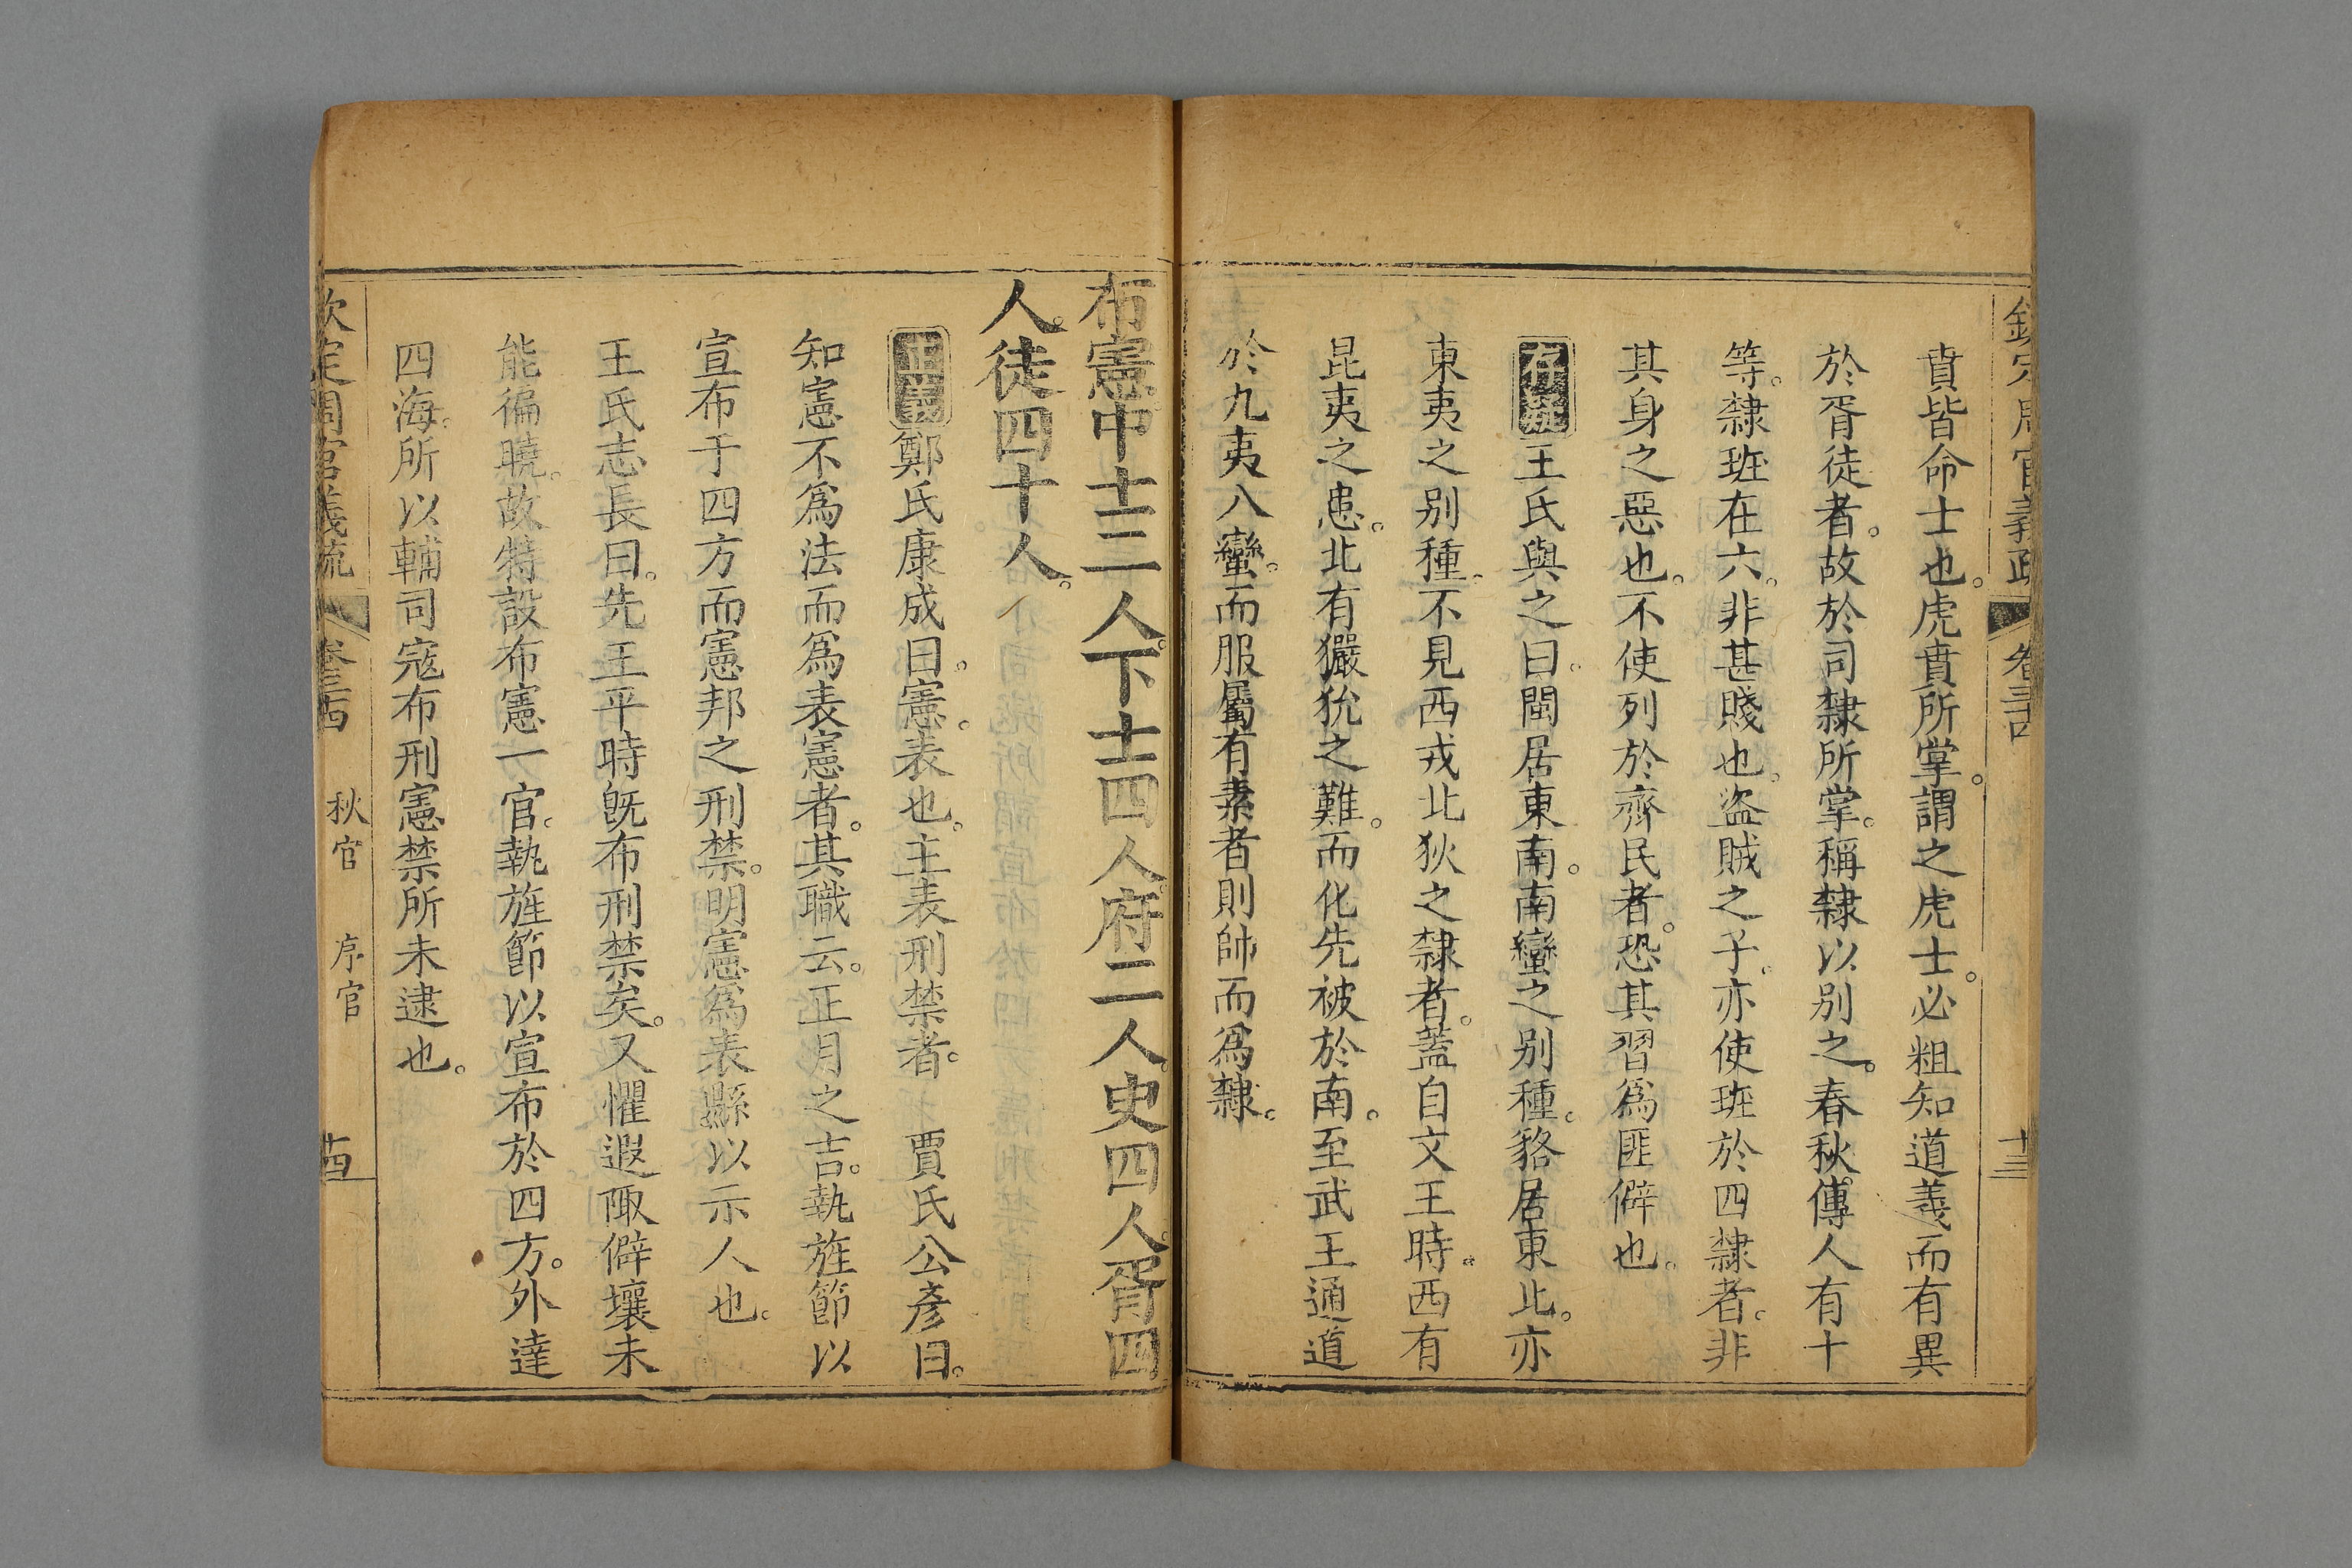 欽定周官義疏 卷三十四 十三
賁皆命士也。虎賁所掌。謂之虎士。必粗知道義而有異
於胥徒者。故於司隸所掌。稱隸以別之。春秋傳人有十
等。隸班在六。非甚賤也。盜賊之子。亦使班於四隸者。非
其身之惡也。不使列於齊民者。恐其習爲匪僻也。
存疑王氏與之曰。閩居東南。南蠻之别種。貉居東北。亦
東夷之别種。不見西戎北狄之隸者。蓋自文王時。西有
昆夷之患。北有玁狁之難。而化先被於南。至武王通道
於九夷八蠻。而服屬有素者則帥而爲隸。
布憲中士二人。下士四人。府二人。史四人。胥四
人。徒四十人。
正義鄭氏康成曰。憲。表也。主表刑禁者。 賈氏公彥曰。
知憲不爲法而爲表憲者。其職云。正月之吉。執旌節以
宣布于四方而憲邦之刑禁。明憲爲表縣以示人也。
王氏志長曰。先王平時旣布刑禁矣。又懼遐陬僻壤未
能徧曉。故特設布憲一官。執旌節以宣布於四方。外達
四海。所以輔司寇布刑憲禁所未逮也。
欽定周官義疏 卷三十四 秋官 序官 十四